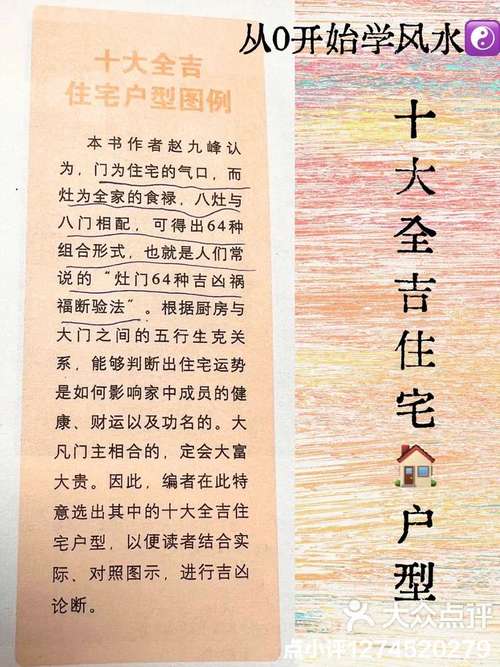 从0开始学风水☯
十大全吉
住宅户型图例
本书作者赵九峰认
为，门为住宅的气口，而
灶为全家的食禄，八灶与
八门相配，可得出64种
组合形式，也就是人们常
说的“灶门64种吉凶祸
福断验法”。根据厨房与
大门之间的五行生克关
系，能够判断出住宅运势
是如何影响家中成员的健
康、财运以及功名的。大
凡门主相合的，定会大富
大贵。因此，编者在此特
意选出其中的十大全吉住
宅户型，以便读者结合实
际、对照图示，进行吉凶
论断。
十大全吉住宅🏠户型
大众点评
点小评1274520279